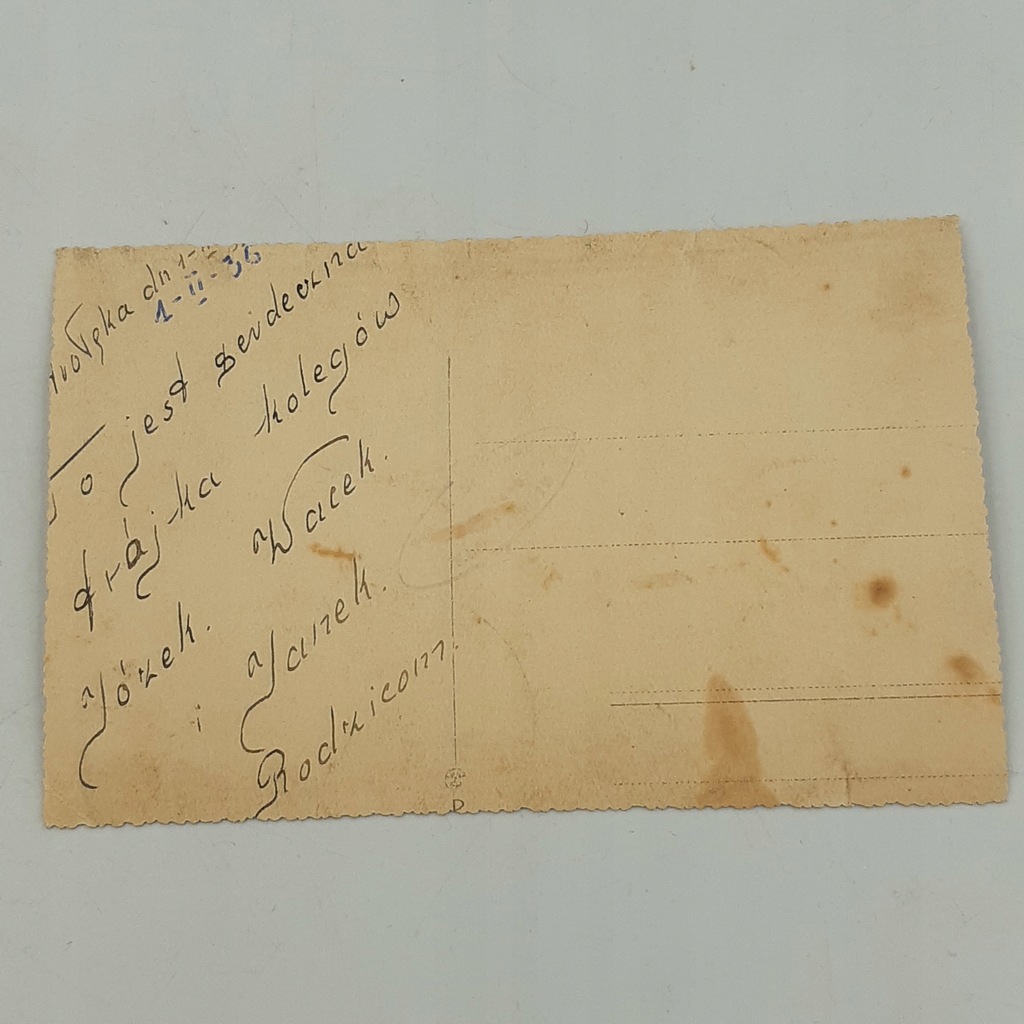 dn 1-II-36
1-II-36
To jest serdeczna
trójka kolegów
Józek. Wacek.
i Janek.
Rodzicom.